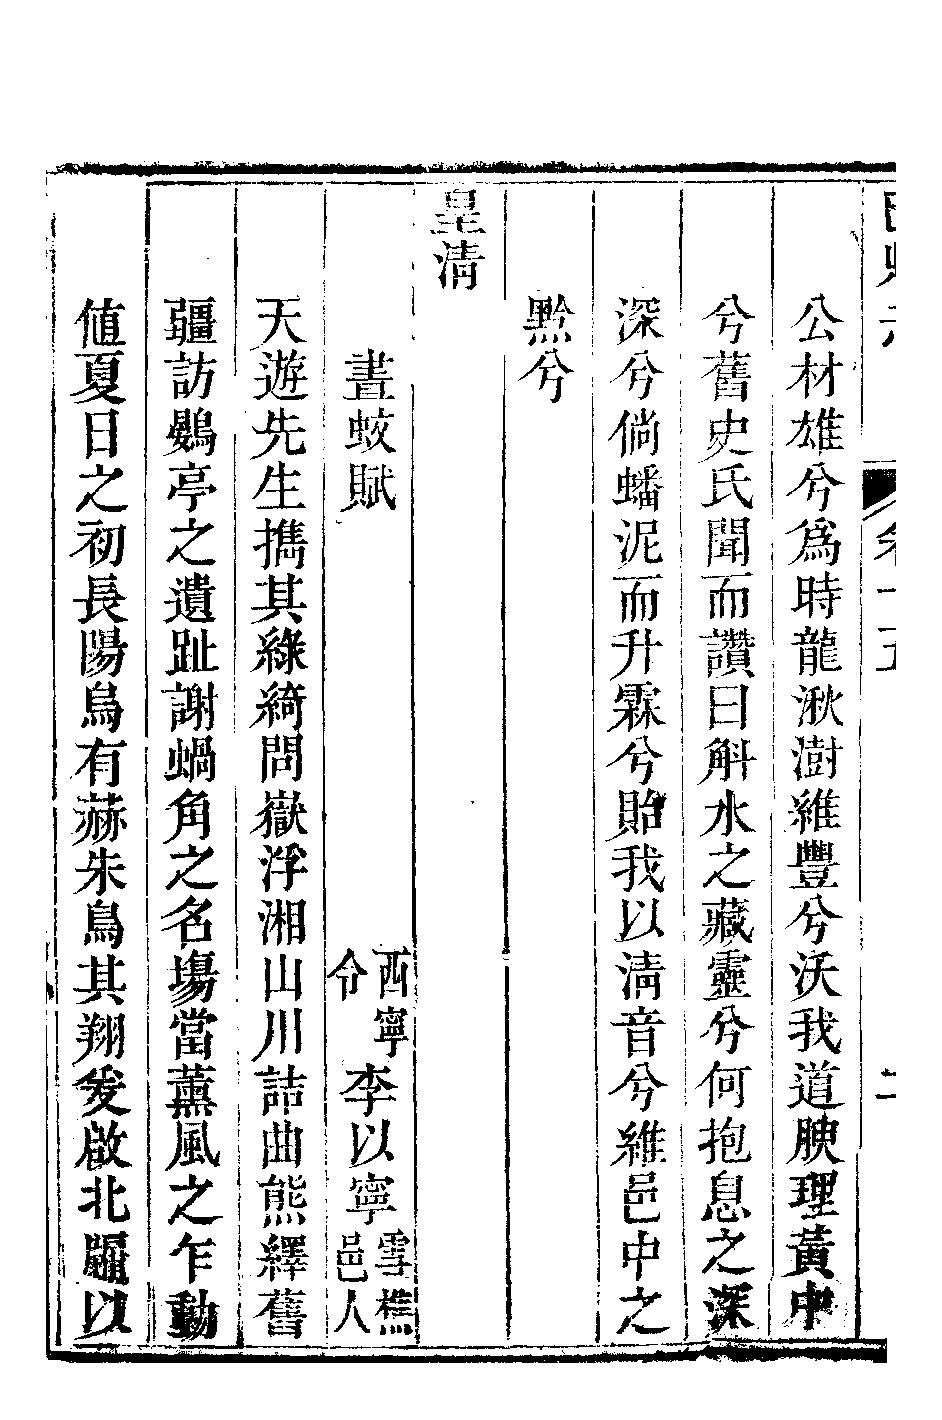 公材雄兮爲時龍湫澍維豐兮沃我道腴理黃中
兮舊史氏聞而讚曰斛水之藏靈兮何抱息之深
深兮倘蟠泥而升霖兮貽我以清音兮維邑中之
黔兮
皇清
晝蚊賦 西寧令李以寧雪樵邑人
天遊先生擕其綠綺問嶽浮湘山川詰曲熊繹舊
疆訪鷃亭之遺趾謝蝸角之名塲當薰風之乍動
値夏日之初長陽烏有赫朱鳥其翔爰啟北牖以